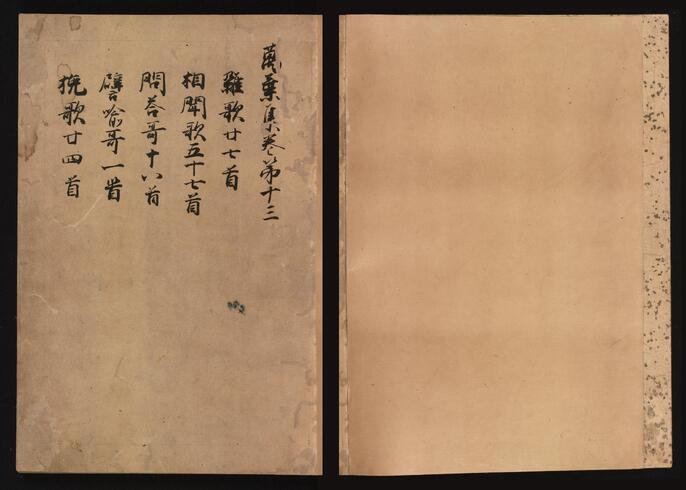 萬葉集巻第十三
雜歌廿七首
相聞歌五十七首
問荅哥十八首
譬喩哥一首
挽歌廿四首